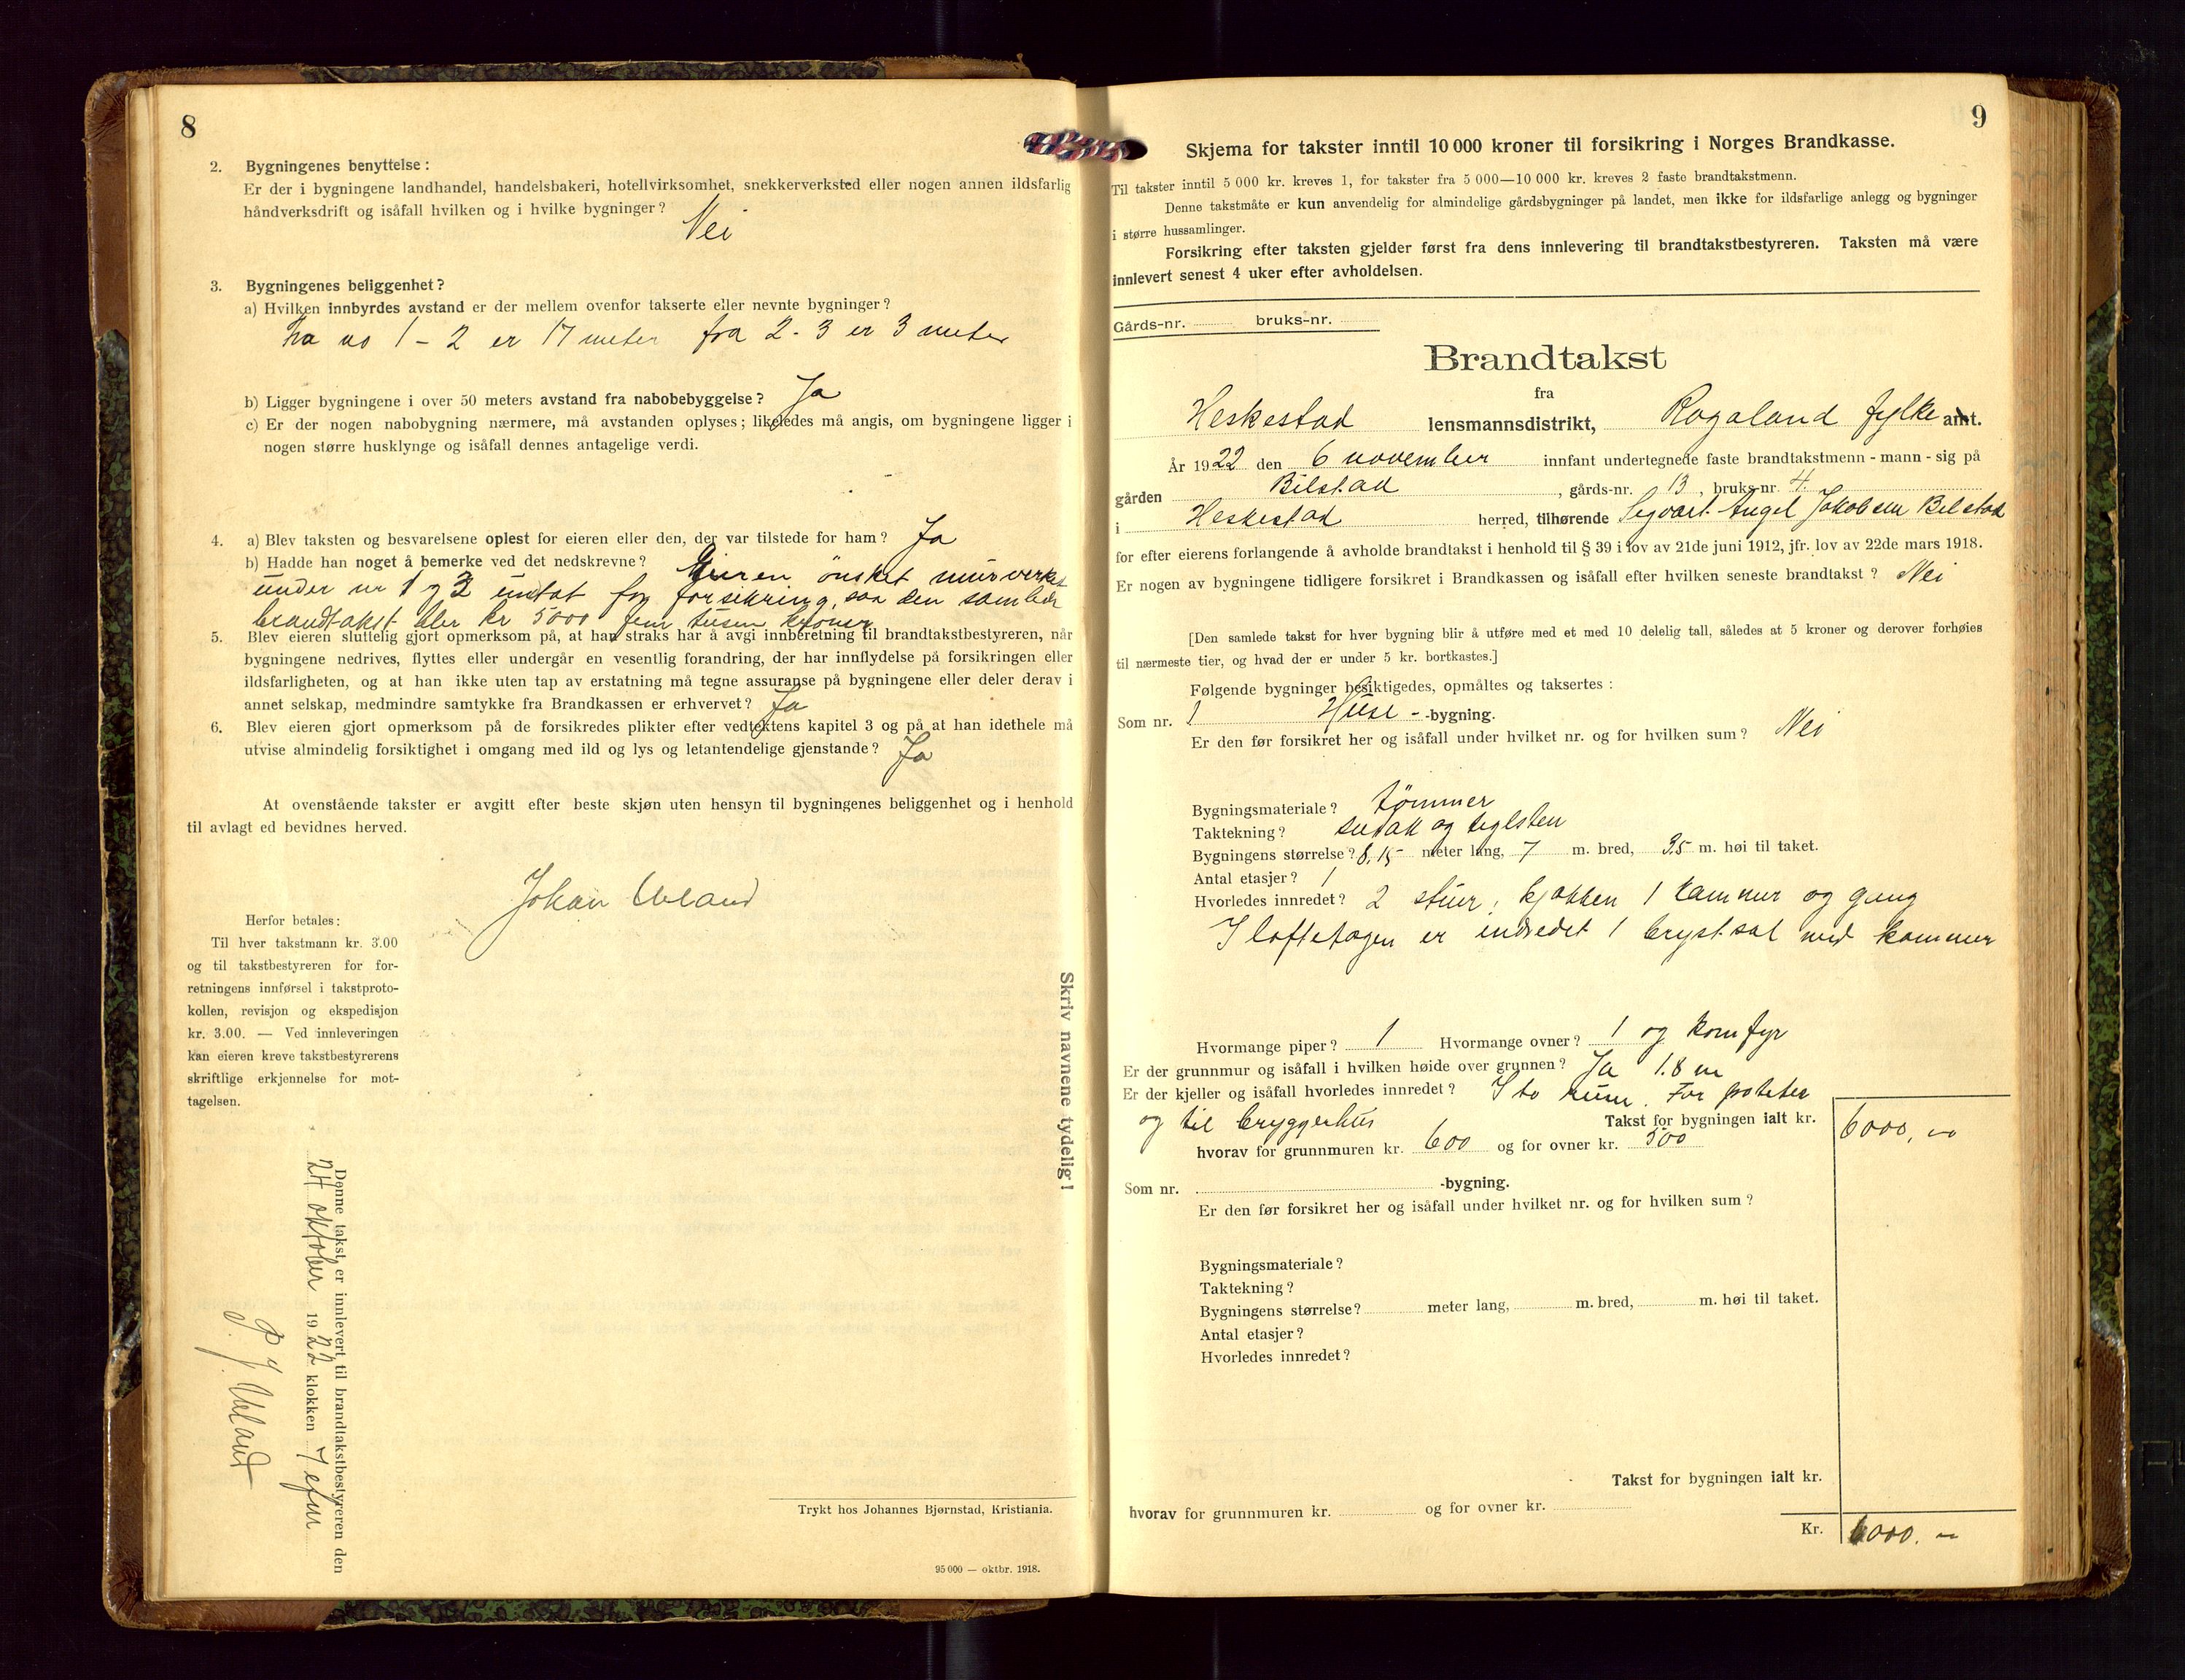 8
2. Bygningenes benyttelse:
Er der i bygningene landhandel, handelsbakeri, hotellvirksomhet, snekkerverksted eller nogen annen ildsfarlig
håndverksdrift og isåfall hvilken og i hvilke bygninger? Nei
3. Bygningenes beliggenhet?
a) Hvilken innbyrdes avstand er der mellem ovenfor takserte eller nevnte bygninger?
Fra no 1 - 2 er 17 meter fra 2 - 3 er 3 meter
b) Ligger bygningene i over 50 meters avstand fra nabobebyggelse? Ja
c) Er der nogen nabobygning nærmere, må avstanden oplyses; likeledes må angis, om bygningene ligger i
nogen større husklynge og isåfall dennes antagelige verdi.
4. a) Blev taksten og besvarelsene oplest for eieren eller den, der var tilstede for ham? Ja
b) Hadde han noget å bemerke ved det nedskrevne? Eieren ønsket murverket
under nr 1 og 3 untat for forsekring, saa den samlede
brandtakst bler kr 5000 fem tusen kroner
5. Blev eieren sluttelig gjort opmerksom på, at han straks har å avgi innberetning til brandtakstbestyreren, når
bygningene nedrives, flyttes eller undergår en vesentlig forandring, der har innflydelse på forsikringen eller
ildsfarligheten, og at han ikke uten tap av erstatning må tegne assuranse på bygningene eller deler derav i
annet selskap, medmindre samtykke fra Brandkassen er erhvervet? Ja
6. Blev eieren gjort opmerksom på de forsikredes plikter efter vedtektens kapitel 3 og på at han idethele må
utvise almindelig forsiktighet i omgang med ild og lys og letantendelige gjenstande? Ja
At ovenstående takster er avgitt efter beste skjøn uten hensyn til bygningenes beliggenhet og i henhold
til avlagt ed bevidnes herved.
Johan Ueland
Herfor betales:
Til hver takstmann kr. 3.00
og til takstbestyreren for for-
retningens innførsel i takstproto-
kollen, revisjon og ekspedisjon
kr. 3.00. — Ved innleveringen
kan eieren kreve takstbestyrerens
skriftlige erkjennelse for mot-
tagelsen.
Denne takst er innlevert til brandtakstbestyreren den
24 oktober 1922 klokken 7 efm
P J. Ueland
Skriv navnene tydelig!
Trykt hos Johannes Bjørnstad, Kristiania.
95 000 — oktbr. 1918.
9
Skjema for takster inntil 10 000 kroner til forsikring i Norges Brandkasse.
Til takster inntil 5 000 kr. kreves 1, for takster fra 5 000—10 000 kr. kreves 2 faste brandtakstmenn.
Denne takstmåte er kun anvendelig for almindelige gårdsbygninger på landet, men ikke for ildsfarlige anlegg og bygninger
i større hussamlinger.
Forsikring efter taksten gjelder først fra dens innlevering til brandtakstbestyreren. Taksten må være
innlevert senest 4 uker efter avholdelsen.
Gårds-nr. bruks-nr.
Brandtakst
fra
Heskestad lensmannsdistrikt, Rogaland fylke amt.
År 1922 den 6 november innfant undertegnede faste brandtakstmenn - mann - sig på
gården Bilstad, gårds-nr. 13, bruks-nr. 4
i Heskestad herred, tilhørende Sigvart Angel Jakobsen Bilstad
for efter eierens forlangende å avholde brandtakst i henhold til § 39 i lov av 21de juni 1912, jfr. lov av 22de mars 1918.
Er nogen av bygningene tidligere forsikret i Brandkassen og isåfall efter hvilken seneste brandtakst? Nei
[Den samlede takst for hver bygning blir å utføre med et med 10 delelig tall, således at 5 kroner og derover forhøies
til nærmeste tier, og hvad der er under 5 kr. bortkastes.]
Følgende bygninger besiktigedes, opmåltes og taksertes:
Som nr. 1 Huse - -bygning.
Er den før forsikret her og isåfall under hvilket nr. og for hvilken sum? Nei
Bygningsmateriale? tømmer
Taktekning? sutak og teglsten
Bygningens størrelse? 8,15 meter lang, 7 m. bred, 3,5 m. høi til taket.
Antal etasjer? 1
Hvorledes innredet? 2 stuer, kjøkken 1 kammer og gang
I loftetagen er indredet 1 brystsal med kammer
Hvormange piper? 1 Hvormange ovner? 1 og komfyr
Er der grunnmur og isåfall i hvilken høide over grunnen? Ja 1.8 m
Er der kjeller og isåfall hvorledes innredet? I to rum. For poteter
og til bryggerhus Takst for bygningen ialt kr. 6000,—
hvorav for grunnmuren kr. 600 og for ovner kr. 300
Som nr. -bygning.
Er den før forsikret her og isåfall under hvilket nr. og for hvilken sum?
Bygningsmateriale?
Taktekning?
Bygningens størrelse? meter lang, m. bred, m. høi til taket.
Antal etasjer?
Hvorledes innredet?
Takst for bygningen ialt kr.
hvorav for grunnmuren kr. og for ovner kr.
Kr. 6000.—